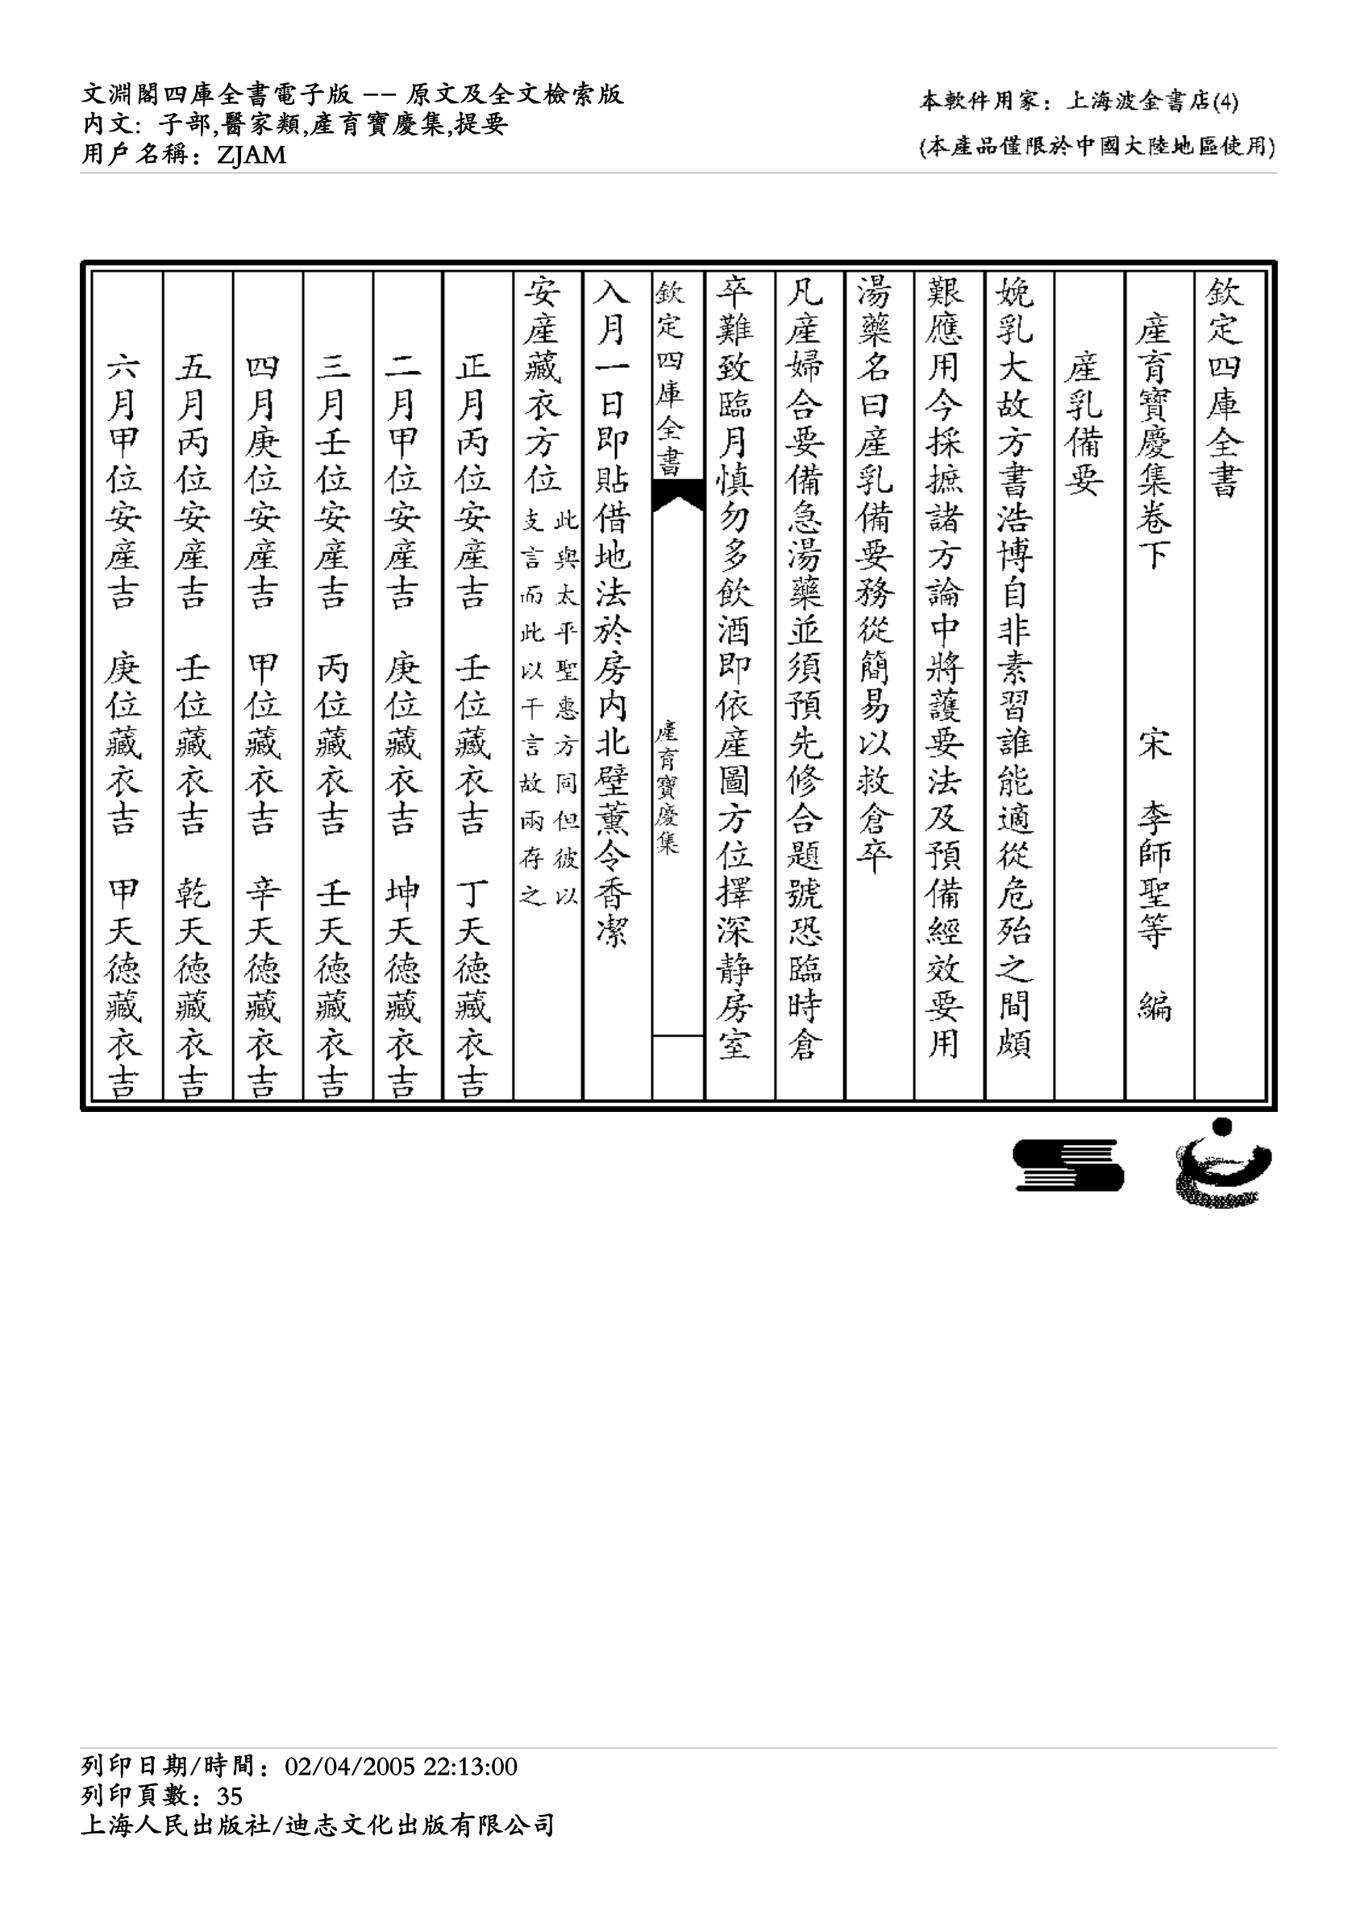 文淵閣四庫全書電子版 -- 原文及全文檢索版
内文: 子部,醫家類,產育寶慶集,提要
用戶名稱: ZJAM
本軟件用家: 上海波金書店(4)
(本產品僅限於中國大陸地區使用)
欽定四庫全書
產育寶慶集卷下 宋 李師聖等 編
產乳備要
娩乳大故方書浩博自非素習誰能適從危殆之間頗
艱應用今採摭諸方論中將護要法及預備經效要用
湯藥名曰產乳備要務從簡易以救倉卒
凡產婦合要備急湯藥並須預先修合題號恐臨時倉
卒難致臨月慎勿多飲酒即依產圖方位擇深静房室
欽定四庫全書 產育寶慶集
入月一日即貼借地法於房内北壁薰令香潔
安產藏衣方位 此與太平聖惠方同但彼以
支言而此以干言故兩存之
正月丙位安產吉 壬位藏衣吉 丁天德藏衣吉
二月甲位安產吉 庚位藏衣吉 坤天德藏衣吉
三月壬位安產吉 丙位藏衣吉 壬天德藏衣吉
四月庚位安產吉 甲位藏衣吉 辛天德藏衣吉
五月丙位安產吉 壬位藏衣吉 乾天德藏衣吉
六月甲位安產吉 庚位藏衣吉 甲天德藏衣吉
列印日期/時間: 02/04/2005 22:13:00
列印頁數: 35
上海人民出版社/迪志文化出版有限公司